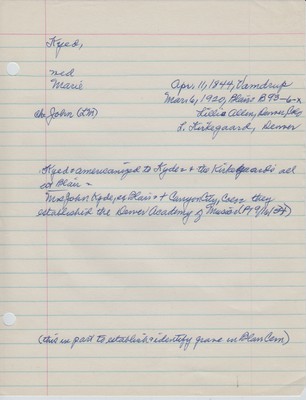 Kyed,
med
Marie
Apr. 11, 1844, Vamdrup
Mar. 6, 1920, Blair B93-6-x
ch. John (LM)
Lillie Allen, Denver, Colo
L. Kirkegaard, Denver
Kyed americanized to Kyde & the Kirkegaards all
at Blair -
Mrs John Kyde, of Blair & Canyon City, Colo they
established the Denver Academy of Music
(this in part to establish & identify grave in Blair Cem)